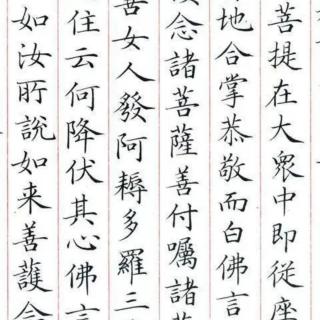 菩提在大眾中即從座
地合掌恭敬而白佛言
念諸菩薩善付囑諸
善女人發阿耨多羅三
住云何降伏其心佛言
如汝所說如来善護念